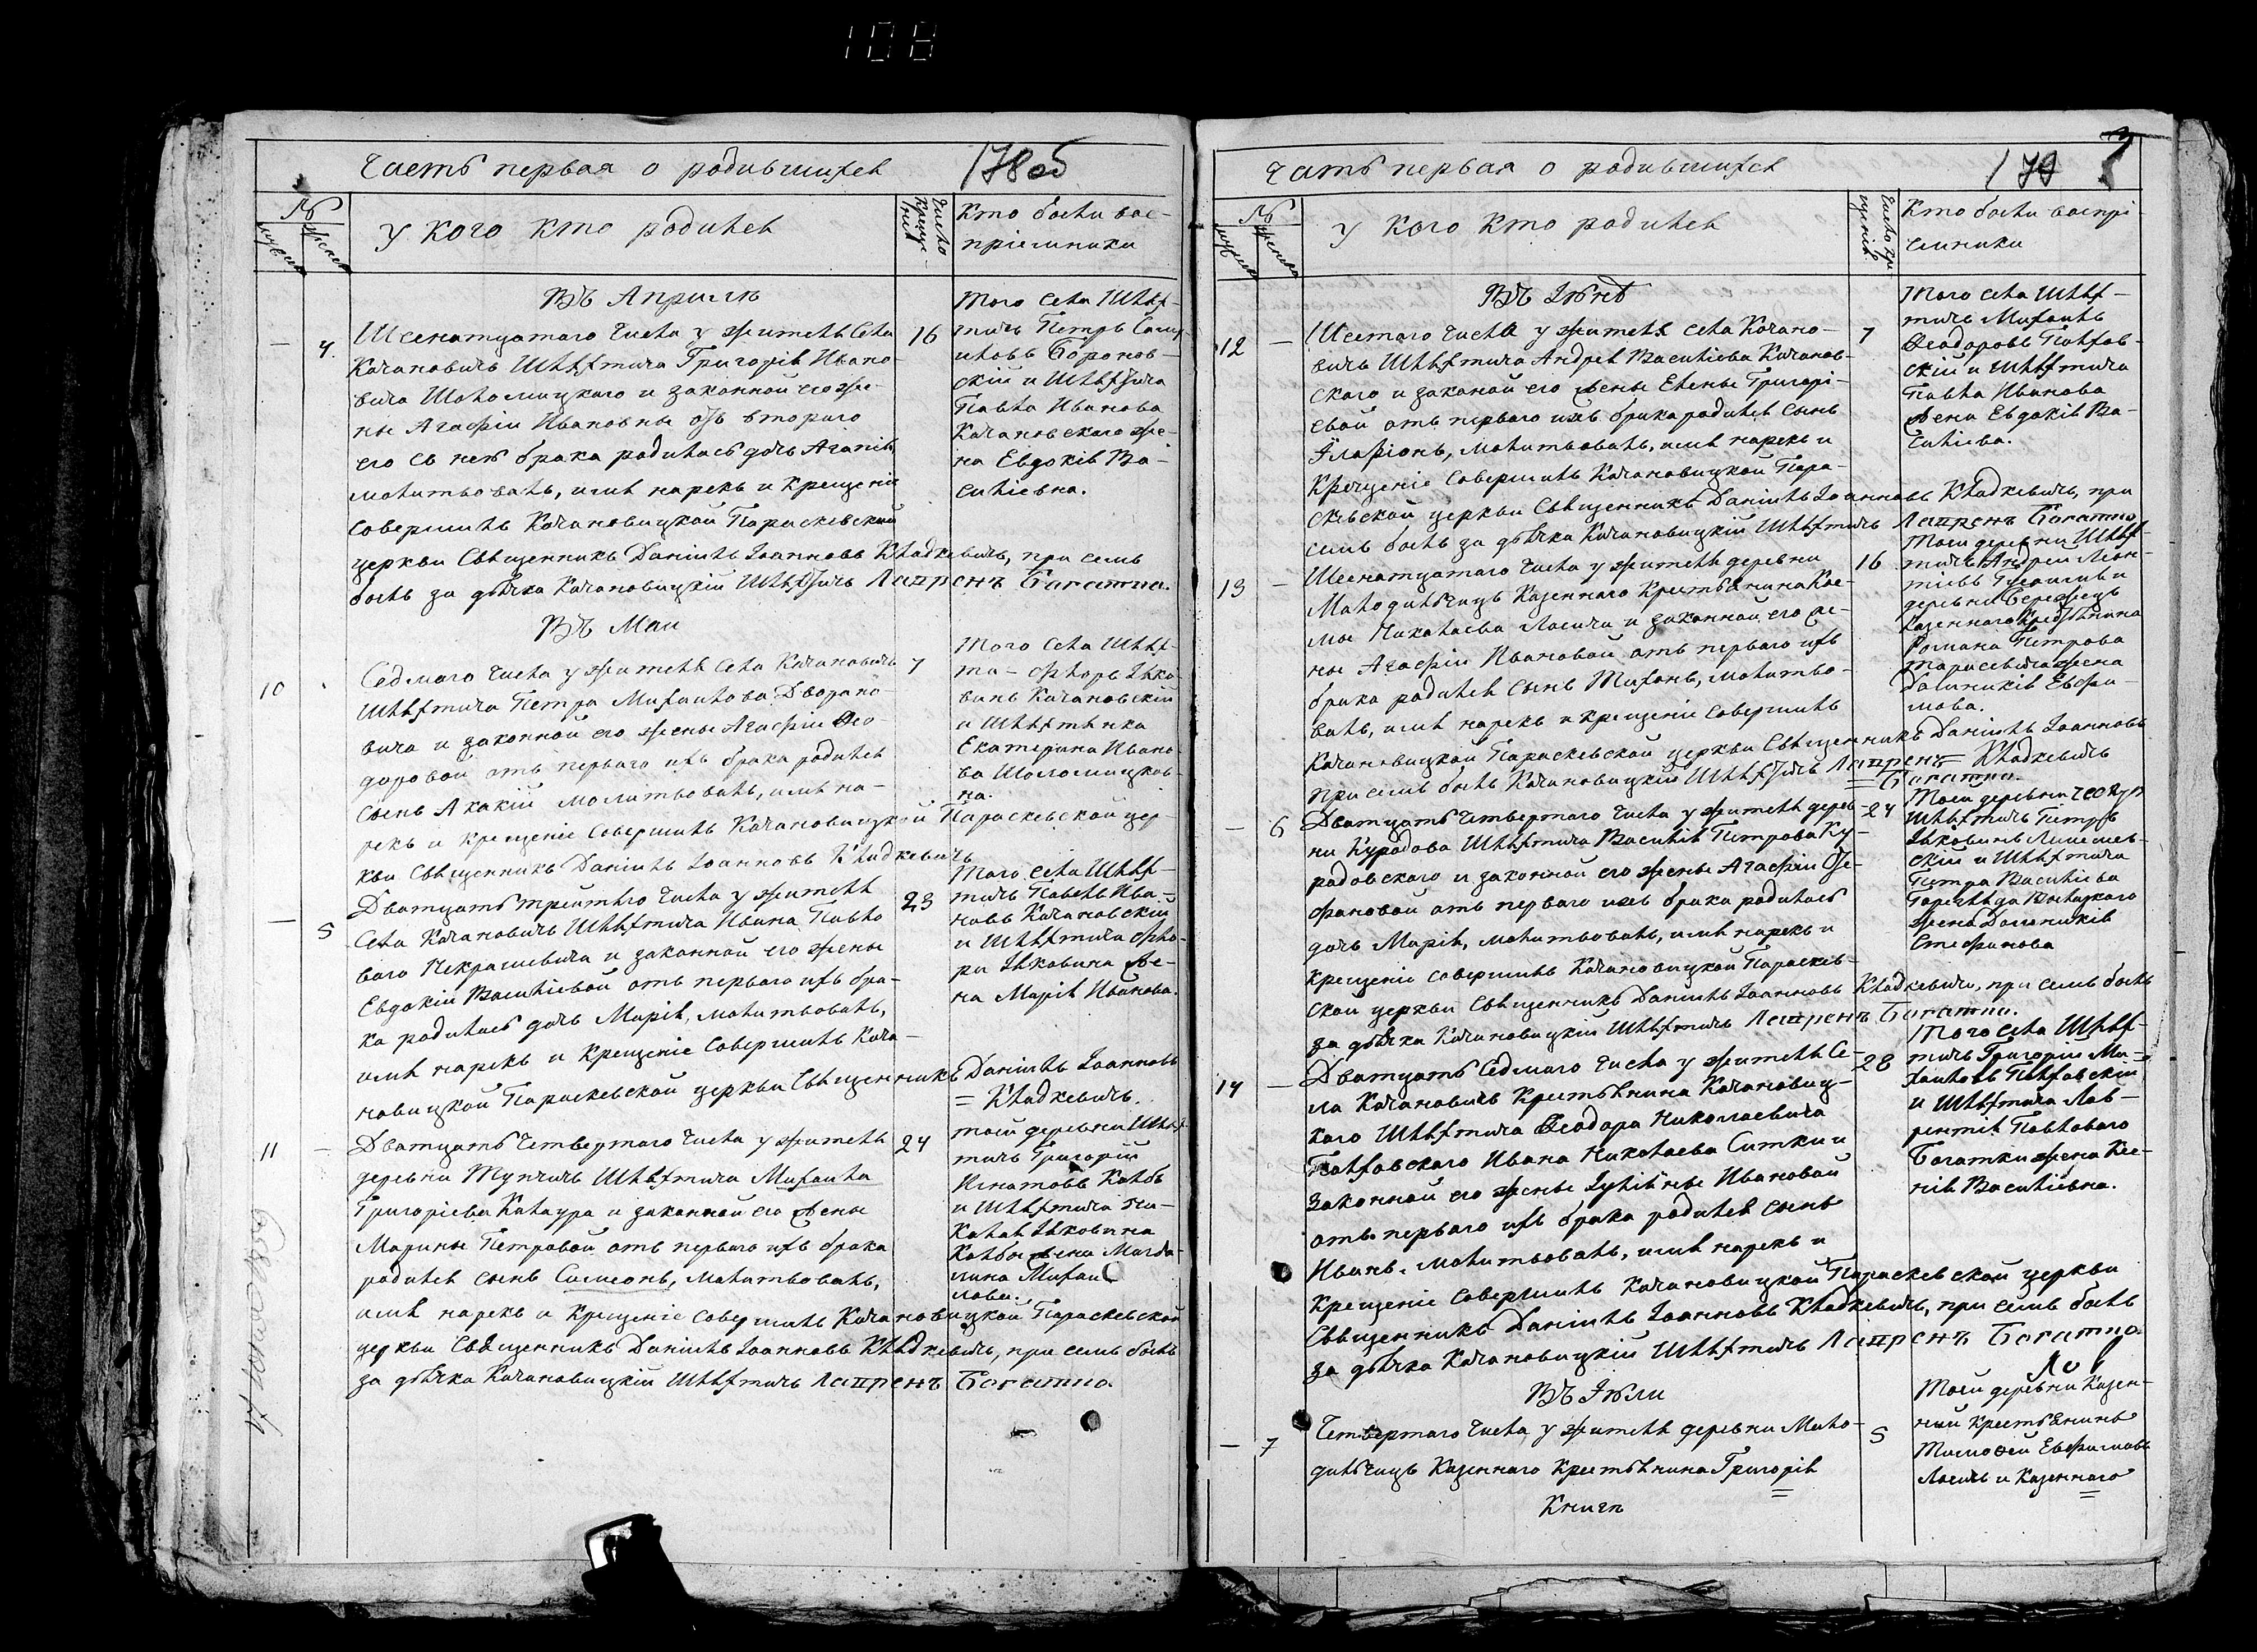 108
Часть первая о родившихся
178 об
№
мужеска
женска
У кого кто родился
Число крещения
Кто были вос-
пріемники
Въ Апрѣлѣ
4
Шеснатцатаго числа у жителя села
Качановичъ Шляхтича Григорія Ивано-
вича Шоломицкаго и законной его же-
ны Агафіи Ивановны отъ втораго
его съ нею брака родилась дочь Агапія,
молитвовалъ, имя нарекъ и крещеніе
совершилъ Качановицкой Параскевской
церкви Священникъ Даніилъ Іоанновъ Кладкевичъ, при семъ
былъ за дьячка Качановицкій Шляхтичъ Лапренъ Богатко.
16
Того села Шлях-
тичъ Петръ
Боронов-
скій и Шляхтича
Павла Иванова
Качановскаго же-
на Евдокія Ва-
силіевна.
Въ Маи
10
Седмаго числа у жителя села Качановичъ
Шляхтича Петра Михаилова Дворано-
вича и законной его жены Агафіи Ѳео-
доровой отъ перваго ихъ брака родился
сынъ Акакій молитвовалъ, имя на-
рекъ и крещеніе совершилъ Качановицкой Параскевской цер-
кви Священникъ Даніилъ Іоанновъ Кладкевичъ
7
Того села Шлях-
та- Флоръ Яко-
винъ Качановскій
и Шляхтянка
Екатерина Ивано-
ва Шоломицков-
на.
5
Дватцать третьяго числа у жителя
села Качановичъ Шляхтича Ивана Павло
ваго Некрашевича и законной его жены
Евдокіи Василіевой отъ перваго ихъ бра-
ка родилась дочь Марія, молитвовалъ,
имя нарекъ и крещеніе совершилъ Кача-
новицкой Параскевской церкви Священникъ Даніилъ Іоанновъ
= Кладкевичъ.
23
Того села Шлях-
тичъ Павелъ Ива-
новъ Качановскій
и Шляхтича Фло-
ра Яковина же-
на Марія Иванова.
11
Дватцать четвертаго числа у жителя
деревни Тупчичъ Шляхтича Михаила
Григоріева Калаура и законной его жены
Марины Петровой отъ перваго ихъ брака
родился сынъ Симеонъ, молитвовалъ,
имя нарекъ и крещеніе совершилъ Качановицкой Параскевской
церкви Священникъ Даніилъ Іоанновъ Кладкевичъ, при семъ былъ
за дьячка Качановицкій Шляхтичъ Лапренъ Богатко
24
тоей деревни Шлях-
тичъ Григорій
Игнатовъ Колбъ
и Шляхтича Ни-
калая Яковина
Колбы жена Магда-
лина Михаи
лова.
Часть первая о родившихся
179
№
мужеска
женска
У кого кто родился
Число крещенія
Кто были воспрі-
емники
Въ Іюнѣ
12
Шестаго числа у жителя села Качано-
вичъ Шляхтича Андрея Василіева Качанов-
скаго и законой его жены Елены Григорі-
евой отъ перваго ихъ брака родился сынъ
Іларіонъ, молитвовалъ, имя нарекъ и
Крещеніе совершилъ Качановицкой Пара-
скевской церкви Священникъ Даніилъ Іоанновъ Кладкевичъ, при
семъ былъ за дьячка Качановицкій Шляхтичъ Лапренъ Богатко
7
Того села Шлях-
тичъ Михаилъ
Ѳеодоровъ Полхов-
скій и Шляхтича
Павла Иванова
жена Евдокія Ва-
силіева.
13
Шеснатцатаго числа у жителя деревни
Молодильчицъ Казеннаго Крестьянина Кос-
мы Николаева Лосича и законной его же-
ны Агафіи Ивановой отъ перваго ихъ
брака родился сынъ Тихонъ, молитво-
валъ, имя нарекъ и крещеніе совершилъ
Качановицкой Параскевской церкви Священникъ Даніилъ Іоанновъ
= Кладкевичъ
при семъ былъ Качановицкій Шляхтичъ Лапренъ
= Богатко.
16
Тоей деревни Шлях-
тичъ Андрей Леон-
тіевъ и
деревни Бережецъ
Казеннаго Крестьянина
Романа Петрова
Тарасевича жена
Доминикія Евфи-
мова.
6
Дватцать четвертаго числа у жителя дерев-
ни Курадова Шляхтича Василія Петрова Ку-
радовскаго и законной его жены Агафіи Сте-
фановой отъ перваго ихъ брака родилась
дочь Марія, молитвовалъ, имя нарекъ и
крещеніе совершилъ Качановицкой Параскев-
ской церкви Священникъ Даніилъ Іоанновъ Кладкевичъ, при семъ былъ
за дьячка Качановицкій Шляхтичъ Лапренъ Богатко.
24
Тоей деревни
Шляхтичъ Петръ
Яковинъ
скій и Шляхтича
Петра Василіева
жена Доминикія
Стефанова
14
Дватцать седмаго числа у жителя се-
ла Качановичъ Крестьянина Качановиц-
каго Шляхтича Ѳеодора Николаевича
Полховскаго Ивана Николаева Ситки и
законной его жены Іуліяны Ивановой
отъ перваго ихъ брака родился сынъ
Иванъ, молитвовалъ, имя нарекъ и
крещеніе совершилъ Качановицкой Параскевской церкви
Священникъ Даніилъ Іоанновъ Кладкевичъ, при семъ былъ
за дьячка Качановицкій Шляхтичъ Лапренъ Богатко
28
Того села Шлях-
тичъ Григорій Ми-
хаиловъ Полховскій
и Шляхтича Лав-
рентія Павловаго
Богатки жена Ксе-
нія Василіевна.
Въ Іюли
7
Четвертаго числа у жителя деревни Моло-
дильчицъ Казеннаго Крестьянина Григорія
5
Тоей деревни Казен-
ный Крестьянинъ
Тимоѳей Евфимовъ
Лосичъ и Казеннаго
Книгѣ